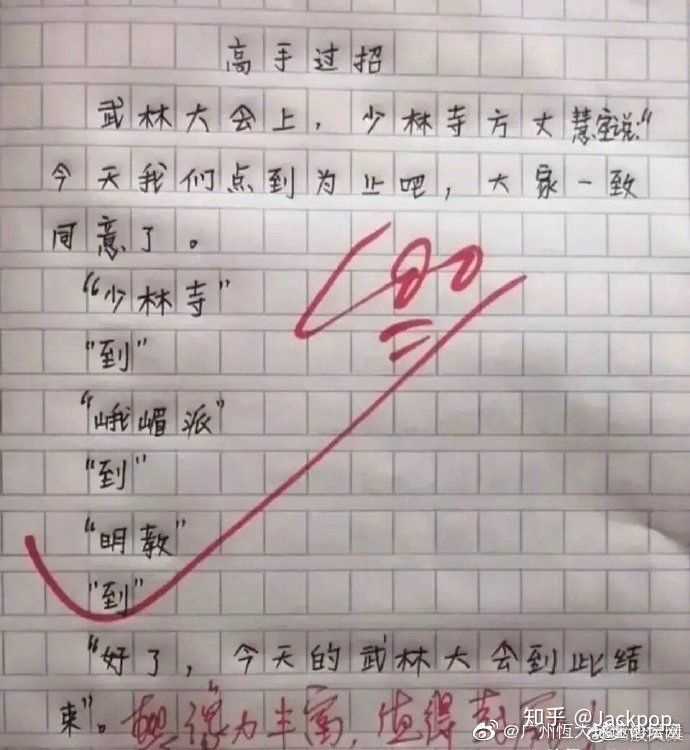 高手过招
武林大会上，少林寺方丈慧空说："
今天我们点到为止吧，大家一致
同意了。
"少林寺"
"到"
"峨嵋派"
"到"
"明教"
"到"
"好了，今天的武林大会到此结
束"。
100
想像力丰富，值得表扬！
知乎 @Jackpop
@广州恆大